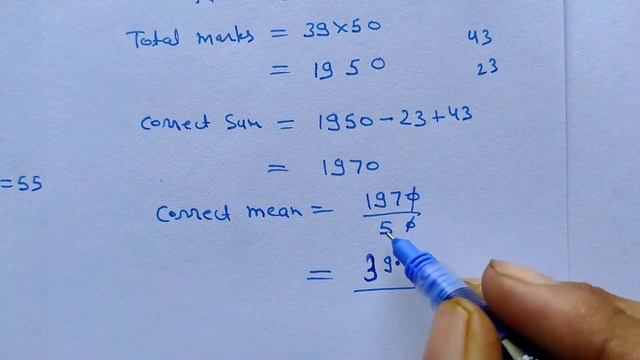 Total marks = 39 × 50
= 1950
43
23
Correct Sum = 1950 - 23 + 43
= 1970
= 55
Correct mean = 1970
50
= 39.